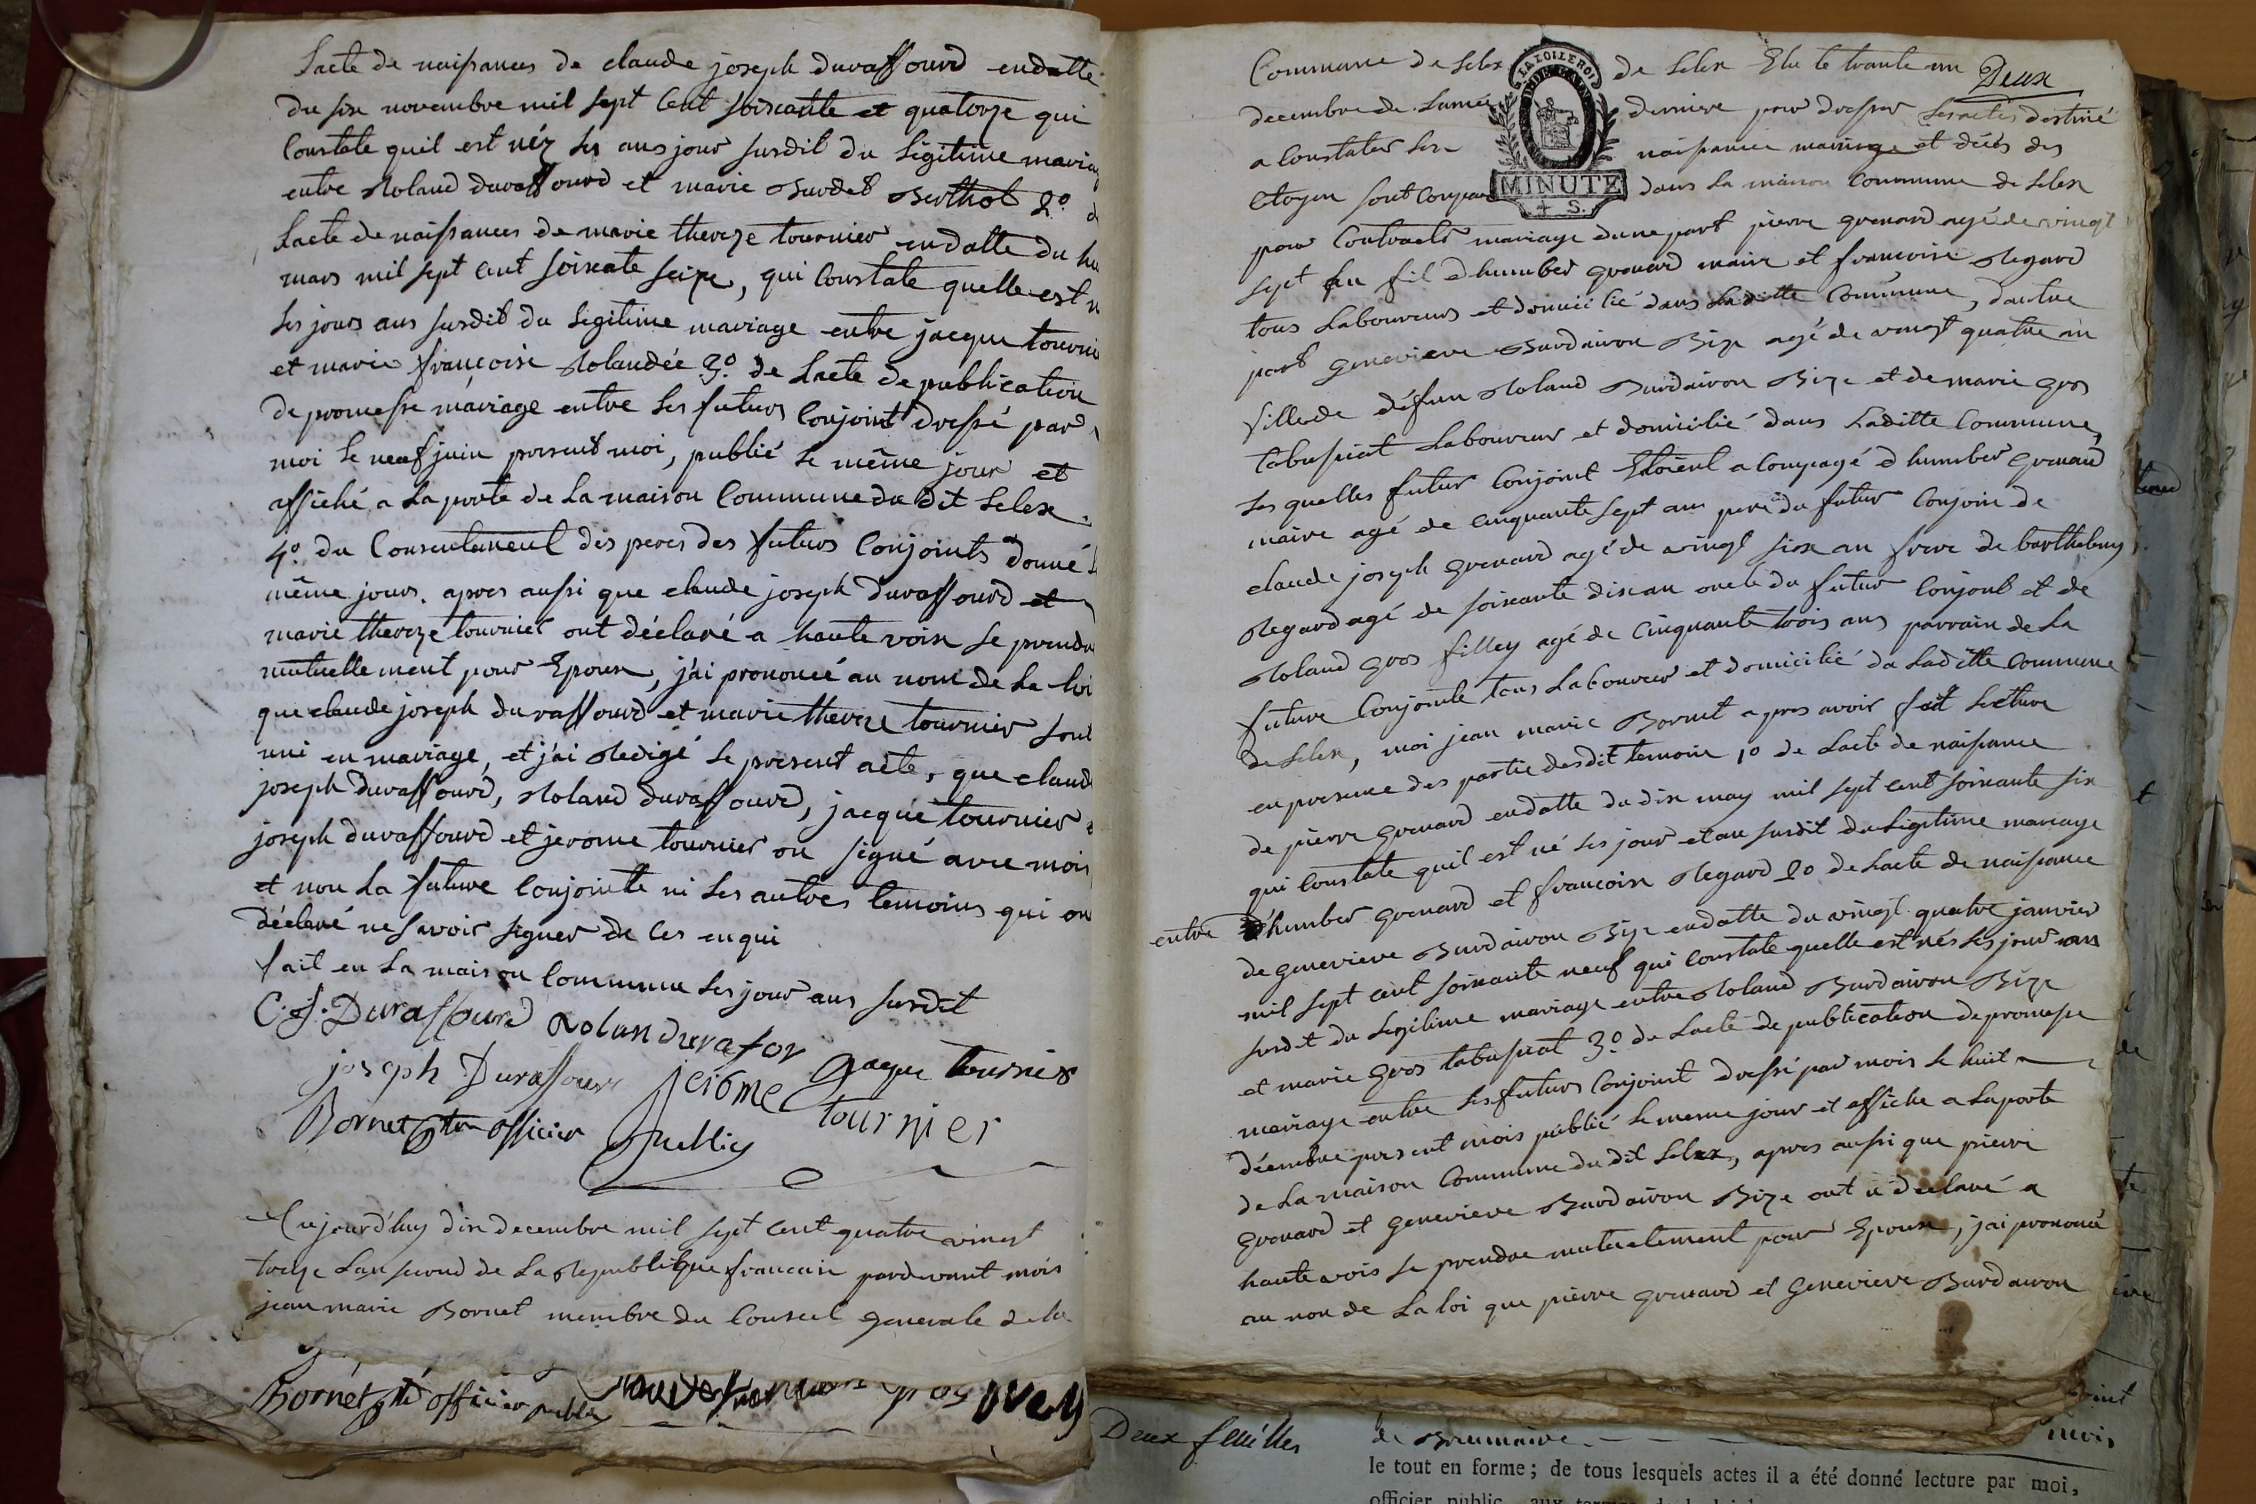 Lacte de naissances de claude joseph duraffourd endatte
du six novembre mil sept Cent soixante et quatorze qui
Constate quil est néz les ans jour susdit du Légitime mariag
entre Roland duraffourd et marie Burdet Berthot 2º d
Lacte de naissances de marie thereze tournier endatte du hu
mars mil sept cent soixcate seize, qui Constate quelle est n
les jours ans susdit du Legitime mariage entre jacque tourni
et marie françoise Rolandée 3º de Lacte de publication
de promesse mariage entre les futurs Conjoint dressé par
moi le neuf juin present moi, publié le même jour et
affiché a La porte de La maison Commune du dit Lelex.
4º du Consentement des peres des futurs Conjoints donné L
même jours. apres aussi que claude joseph duraffourd et
marie thereze tournier ont déclaré a haute voix se prendr
mutuellement pour Epoux, j'ai prononcé au nom de La loi
que claude joseph duraffourd et marie thereze tournier sont
uni en mariage, et j'ai Redigé le present acte, que claud
joseph duraffourd, Roland duraffourd, jacque tournier
joseph duraffourd et jerome tournier on signé avec mois
et non La future Conjointe ni Les autres temoins qui on
déclaré ne savoir signer de ces enqui
fait en La maison Commune Les jour ans susdit
C. J. Duraffourd Rolan durafor
joseph Duraffour jerome jaque tournier
Bornet officier tournier
Aujourd'huy dix decembre mil sept cent quatre vingt
treize Lan second de La Republique francaise pardevant mois
jean marie Bornet membre du Conseil generale de la
Bornet officier public
Commune de Lelex de Lelex Elu le trante un Deux
decembre de Lannée derniere pour dresser Les actes destiné
a Constater Les naissance mariage et décès des
Citoyen sont Compar dans La maison Commune de Lelex
LA LOI LE ROI
MINUTE
4 S.
pour Contracter mariage dune part pierre grenard agé de vingt
sept an fil d humber grenard maire et francoise Regard
tous Laboureurs et domicilié dans Laditte Commune, dautre
part genevieve Burdairon Bize agé de vingt quatre an
fille de défun Roland Burdairon Bize et de marie gros
tabussiat Laboureur et domicilié dans Laditte Commune,
Les quelles futur Conjoint Etoient a Compagé d humber grenard
maire agé de cinquante sept ans pere du futur Conjoin de
claude joseph grenard agé de vingt six an frere de barthelemy
Regard agé de soixante dix an oncle du futur Conjoint et de
Roland gros filley agé de Cinquante trois ans parrain de La
future Conjointe tous Laboureur et domicilié da Laditte Commune
de Lelex, moi jean marie Bornet apres avoir fait Lecture
en presence des partie desdit temoin 1º de Lacte de naissance
de pierre grenard endatte du dix may mil sept cent soixante six
qui Constate quil est né les jour et an susdit du Legitime mariage
entre d'humber grenard et francoise Regard 2º de Lacte de naissance
de genevieve Burdairon Bize endatte du vingt quatre janvier
mil sept cent soixante neuf qui Constate quelle est nés les jour ans
susdit du Legitime mariage entre Roland Burdairon Bize
et marie gros tabussiat 3º de Lacte de publication de promesse
mariage entre les futurs Conjoint dressé par mois le huit
décembre present mois publié le meme jour et affiché a La porte
de La maison Commune du dit Lelex, apres aussi que pierre
grenard et genevieve Burdairon Bize ont déclaré a
haute vois se prendre mutuelement pour Epoux, j'ai prononcé
au non de La loi que pierre grenard et genevieve Burdairon
Deux feuilles
de Brumaire.
le tout en forme; de tous lesquels actes il a été donné lecture par moi,